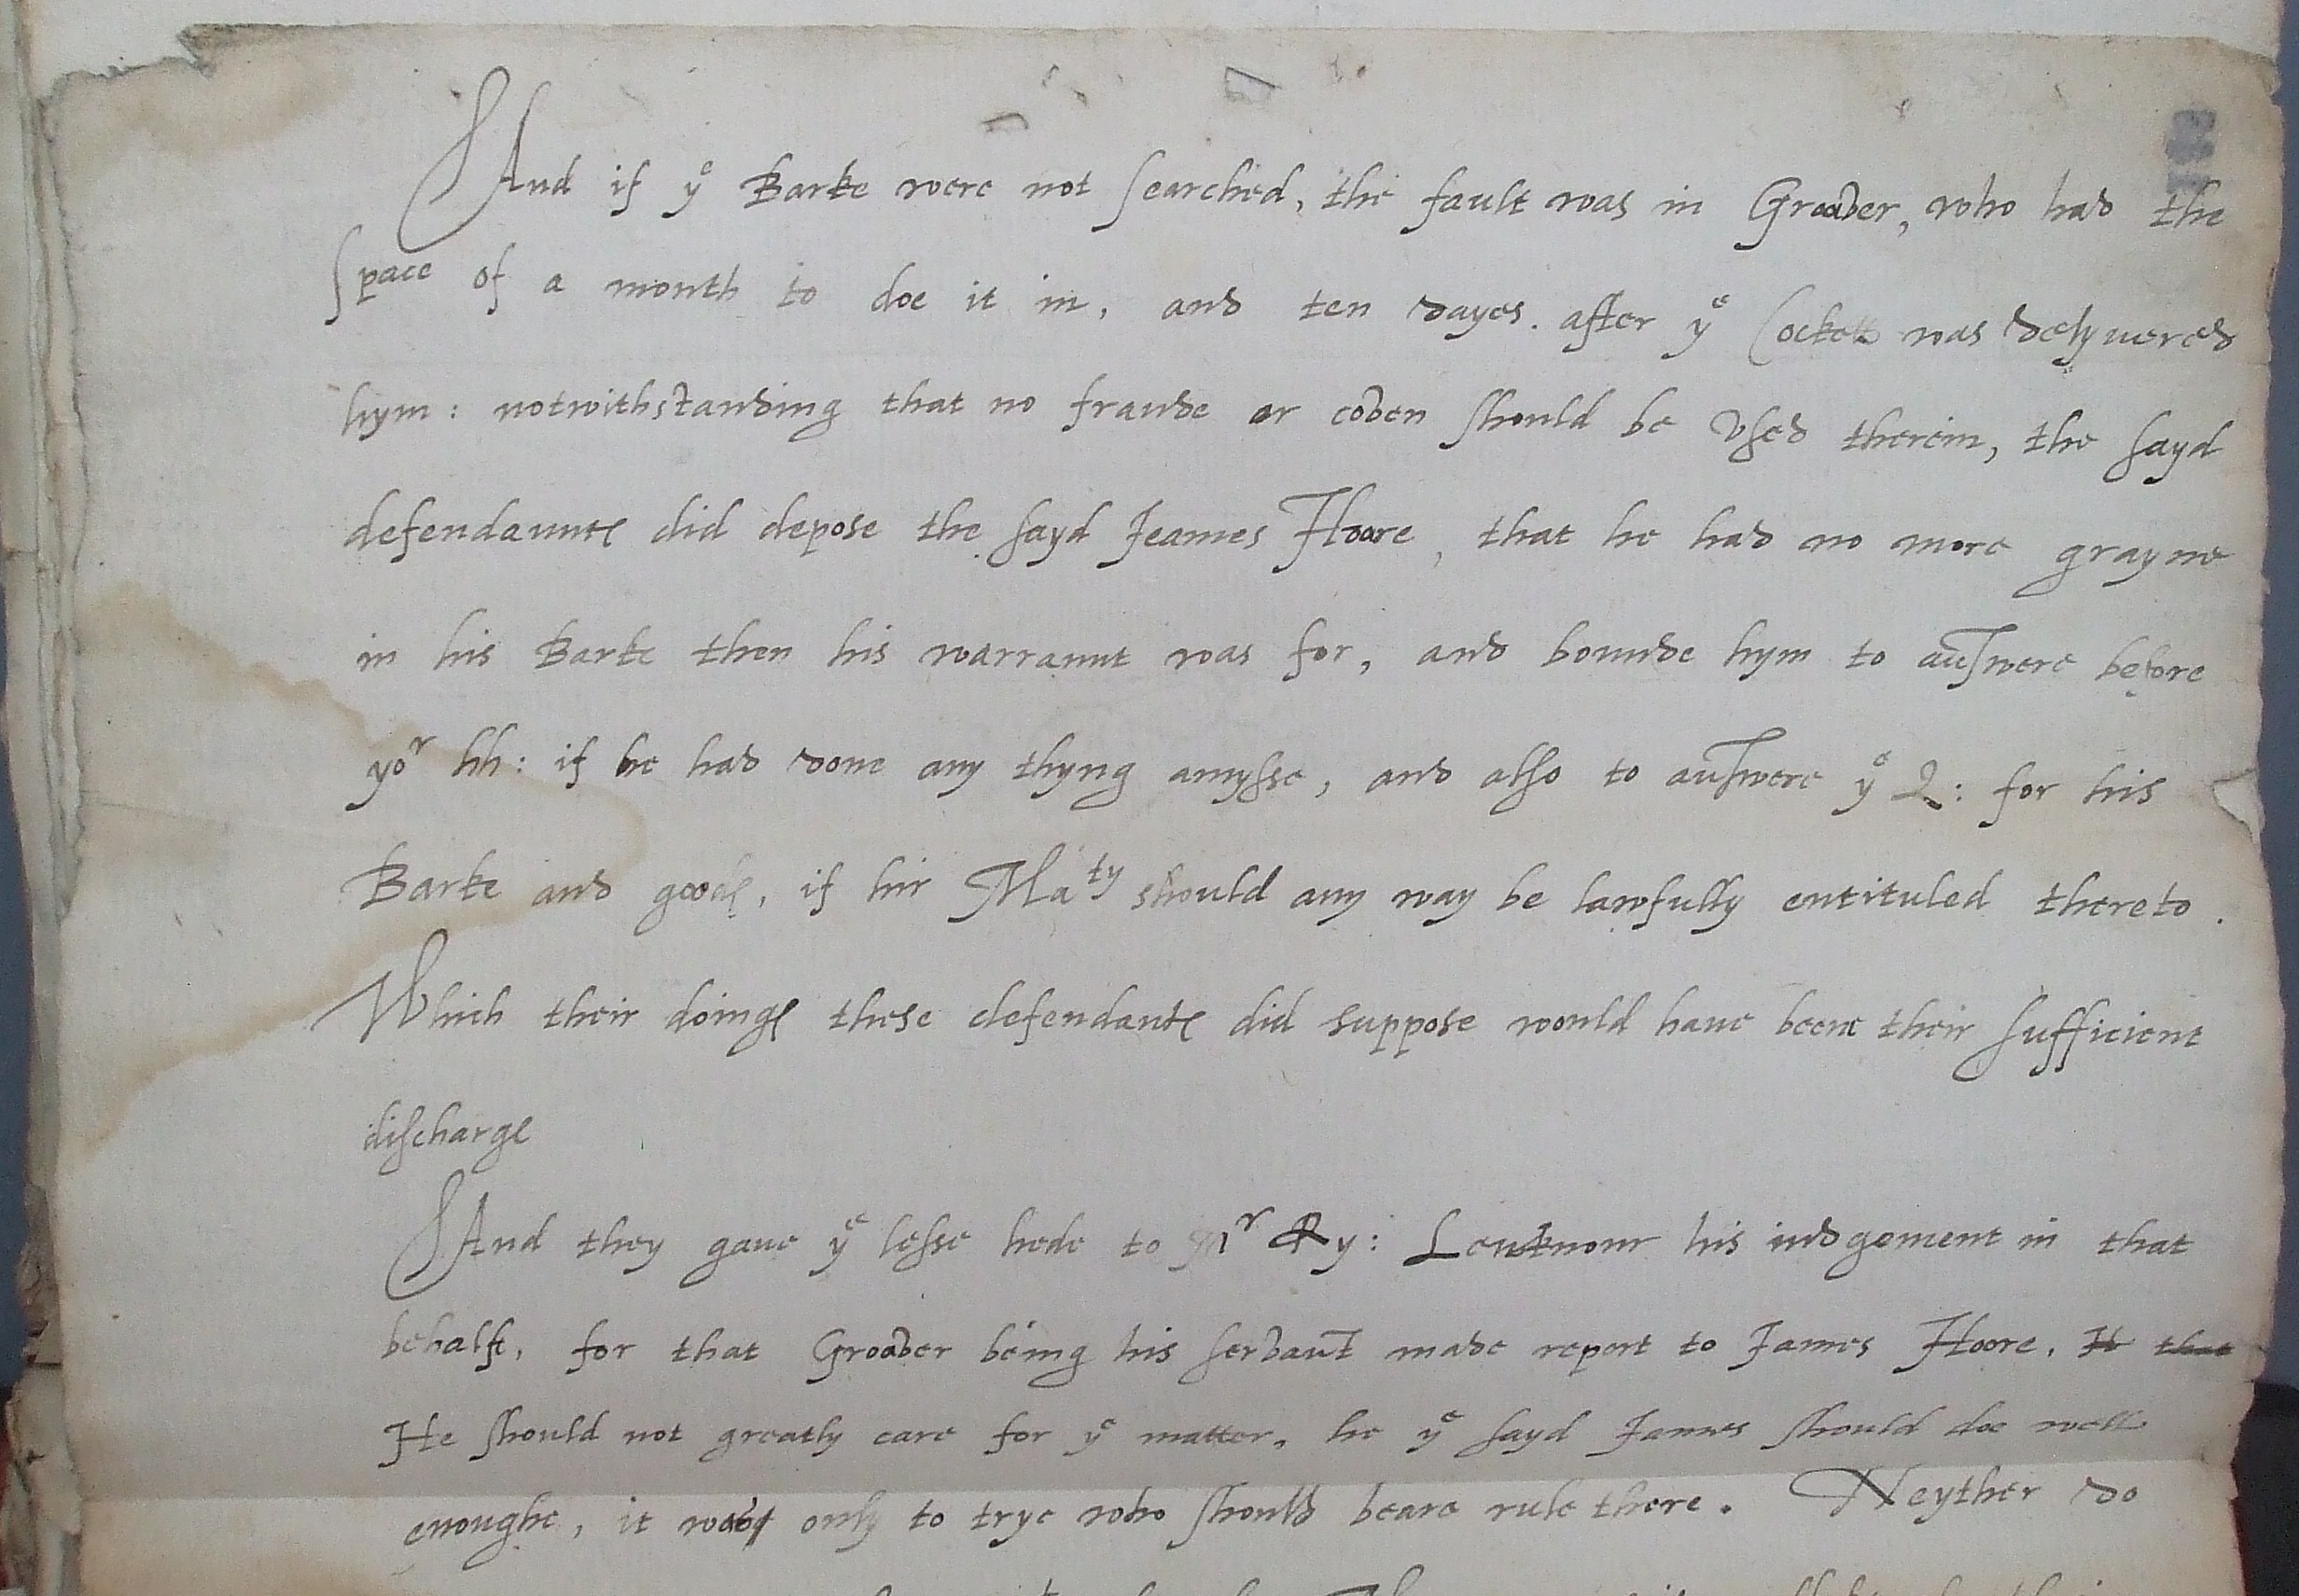 And if yᵉ Barke were not searched, the fault was in Groaver, who had the
space of a month to doe it in, and ten dayes. after yᵉ Cockett was delyuered
hym: notwithstanding that no fraude or coven should be vsed therein, the sayd
defendauntes did depose the sayd Jeames Hoore, that he had no more grayne
in his Barke then his warraunt was for, and bounde hym to aūswere before
yoʳ hh: if he had done any thyng amysse, and also to aūswere yᵉ Q: for his
Barke and goodes, if hir Maᵗʸ should any way be lawfully entituled thereto.
Which their doinges these defendantes did suppose would haue beene their sufficient
discharge
And they gaue yᵉ lesse hede to Mʳ Ry: Leuknour his iudgement in that
behalfe, for that Groaver being his servaūt made report to James Hoore. He that
He should not greatly care for yᵉ matter, he yᵉ sayd James should doe well
enoughe, it was only to trye who should beare rule there. Neyther do